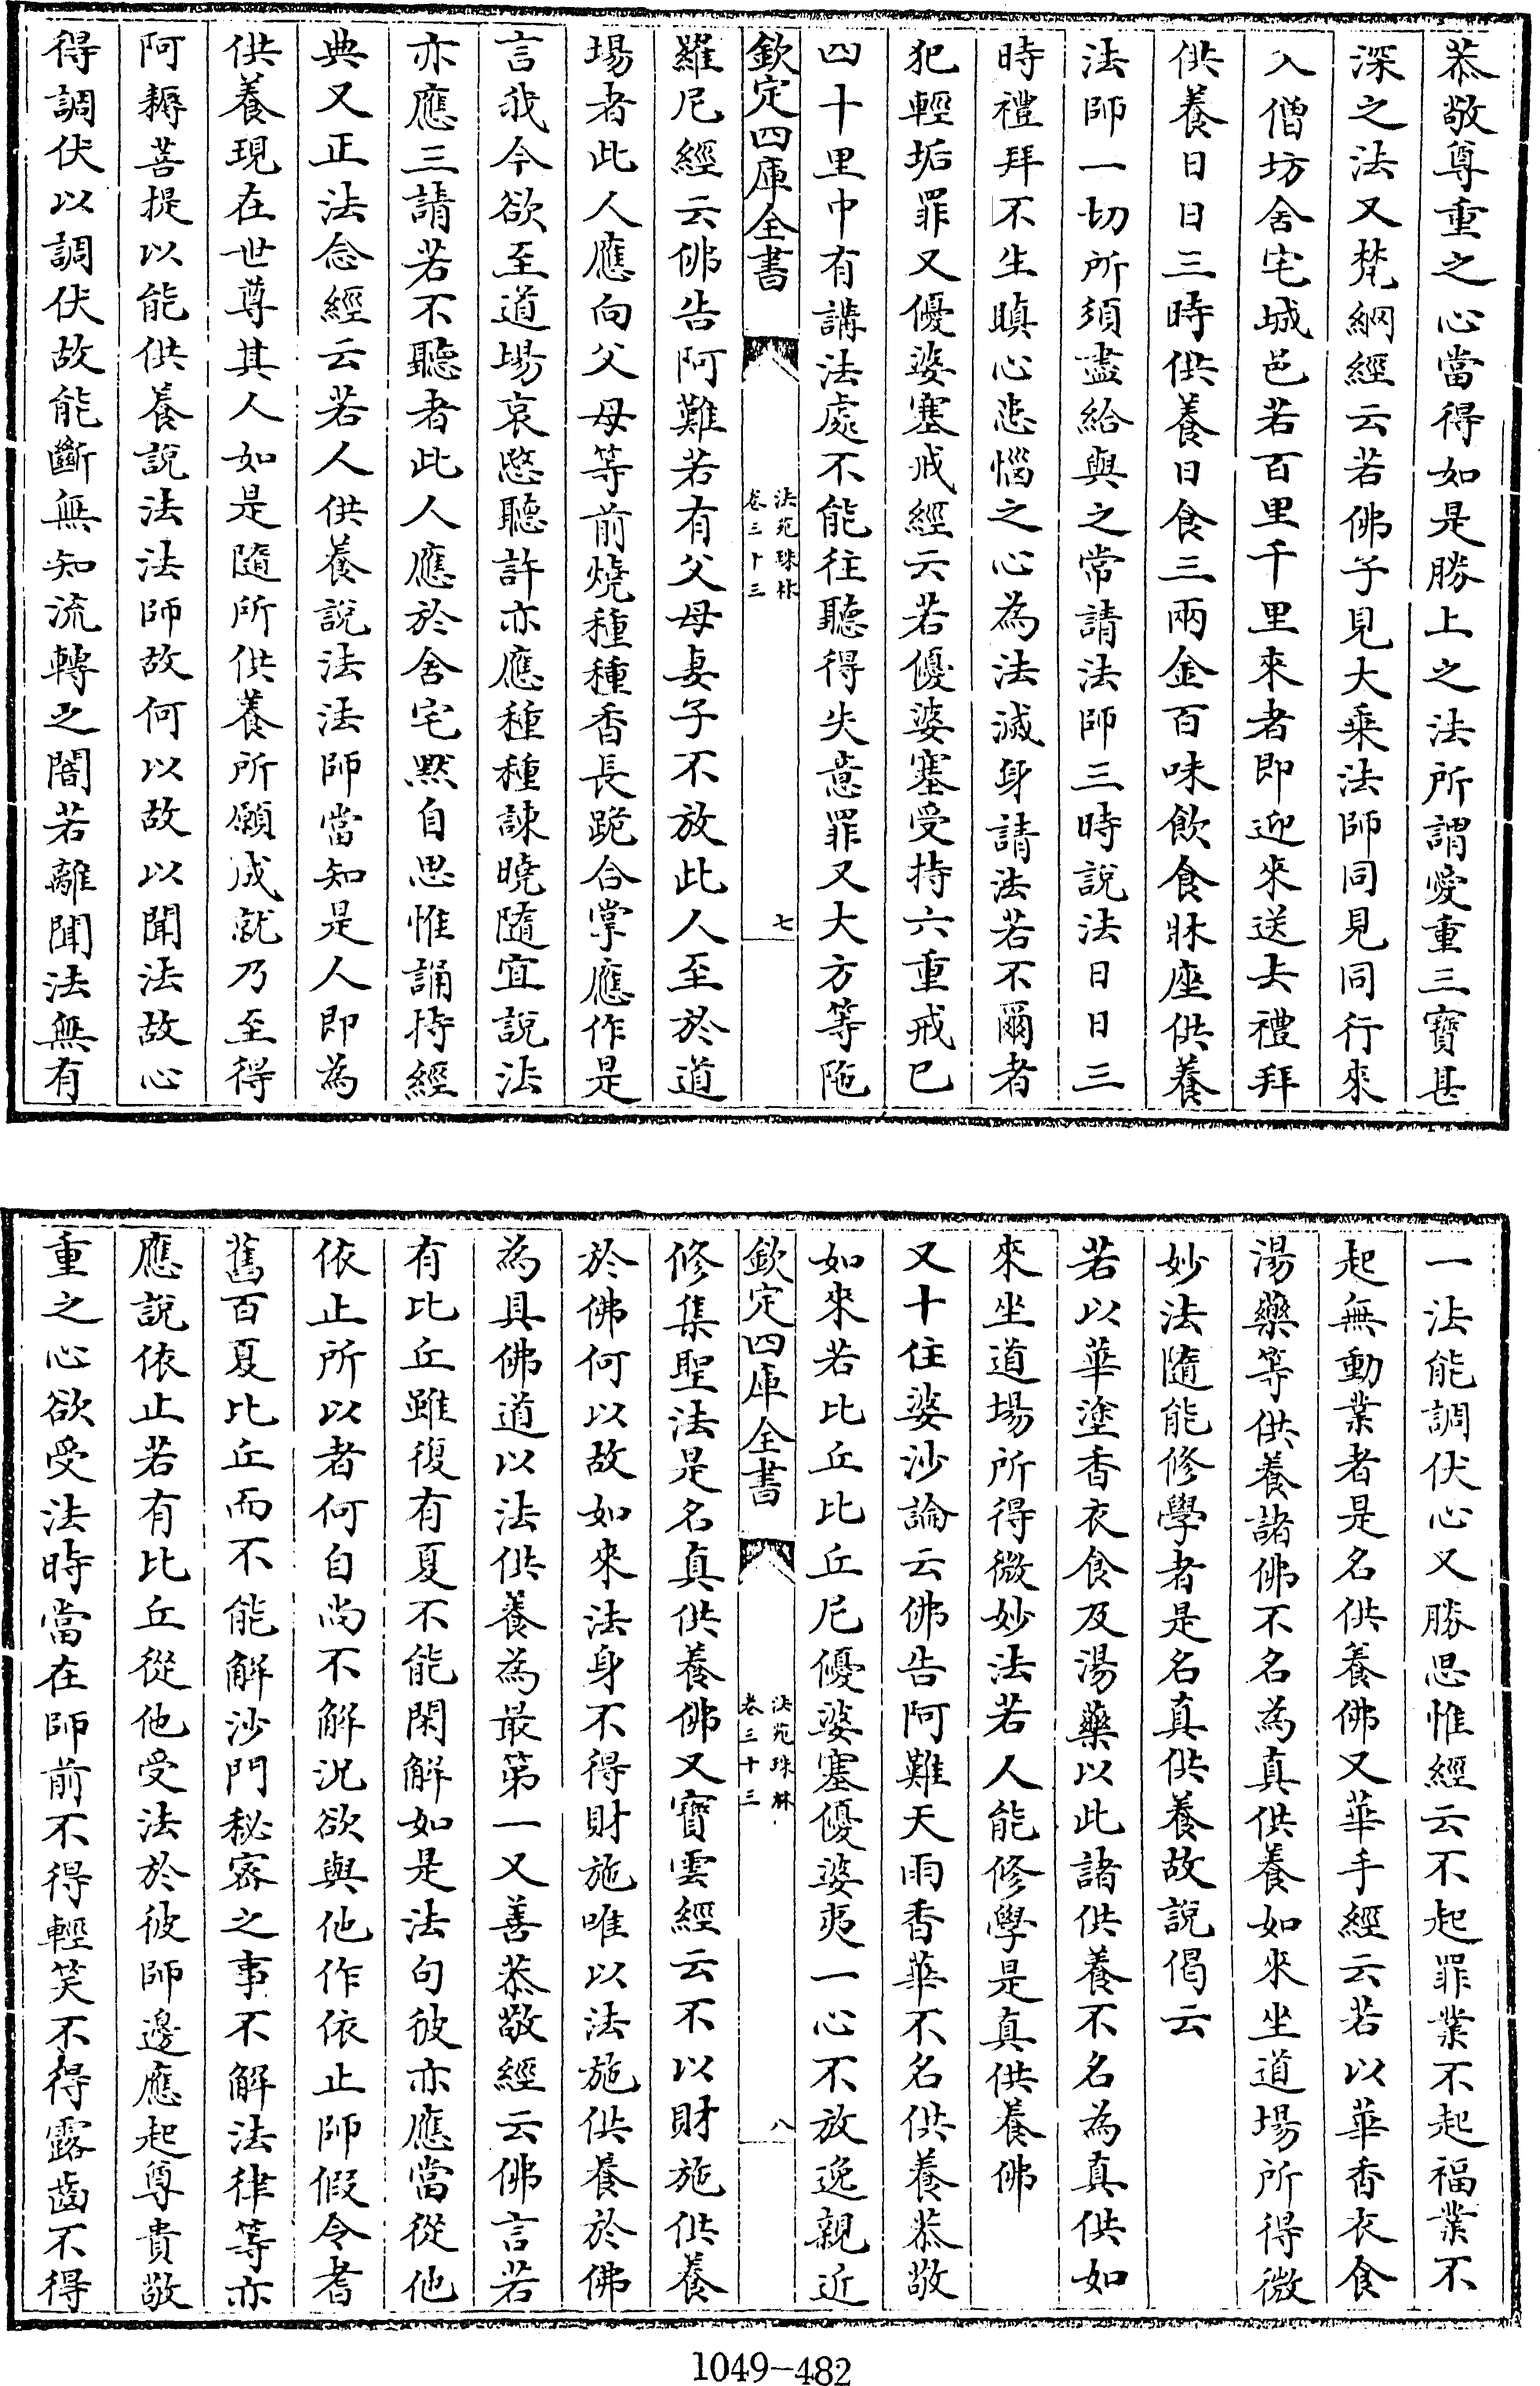 恭敬尊重之心當得如是勝上之法所謂愛重三寶甚
深之法又梵網經云若佛子見大乘法師同見同行來
入僧坊舍宅城邑若百里千里來者即迎來送去禮拜
供養日日三時供養日食三兩金百味飲食牀座供養
法師一切所須盡給與之常請法師三時說法日日三
時禮拜不生瞋心恚惱之心為法滅身請法若不爾者
犯輕垢罪又優婆塞戒經云若優婆塞受持六重戒已
四十里中有講法處不能往聽得失意罪又大方等陁
欽定四庫全書
法苑珠林
卷三十三
七
羅尼經云佛告阿難若有父母妻子不放此人至於道
場者此人應向父母等前燒種種香長跪合掌應作是
言我今欲至道場哀愍聽許亦應種種諫曉隨宜說法
亦應三請若不聽者此人應於舍宅默自思惟誦持經
典又正法念經云若人供養說法法師當知是人即為
供養現在世尊其人如是隨所供養所願成就乃至得
阿耨菩提以能供養說法法師故何以故以聞法故心
得調伏以調伏故能斷無知流轉之闇若離聞法無有
一法能調伏心又勝思惟經云不起罪業不起福業不
起無動業者是名供養佛又華手經云若以華香衣食
湯藥等供養諸佛不名為真供養如來坐道場所得微
妙法隨能修學者是名真供養故說偈云
若以華塗香衣食及湯藥以此諸供養不名為真供如
來坐道場所得微妙法若人能修學是真供養佛
又十住婆沙論云佛告阿難天雨香華不名供養恭敬
如來若比丘比丘尼優婆塞優婆夷一心不放逸親近
欽定四庫全書
法苑珠林
卷三十三
八
修集聖法是名真供養佛又寶雲經云不以財施供養
於佛何以故如來法身不得財施唯以法施供養於佛
為具佛道以法供養為最第一又善恭敬經云佛言若
有比丘雖復有夏不能閑解如是法句彼亦應當從他
依止所以者何自尚不解況欲與他作依止師假令耆
舊百夏比丘而不能解沙門秘密之事不解法律等亦
應說依止若有比丘從他受法於彼師邊應起尊貴敬
重之心欲受法時當在師前不得輕笑不得露齒不得
1049-482